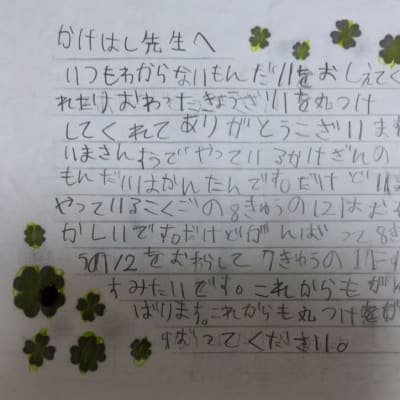 かけはし先生へ
いつもわからないもんだいをおしえてく
れたり、おわったきょうざいを丸つけ
してくれてありがとうございま
いまさんすうでやっているかけざんの
もんだいはかんたんです。だけど
やっているこくごの8きゅうの121は
かしいです。だけどがんばって8き
うの1/2をおわらして7きゅうの1に
すみたいです。これからもがん
ばります。これからも丸つけをが
んばってください。